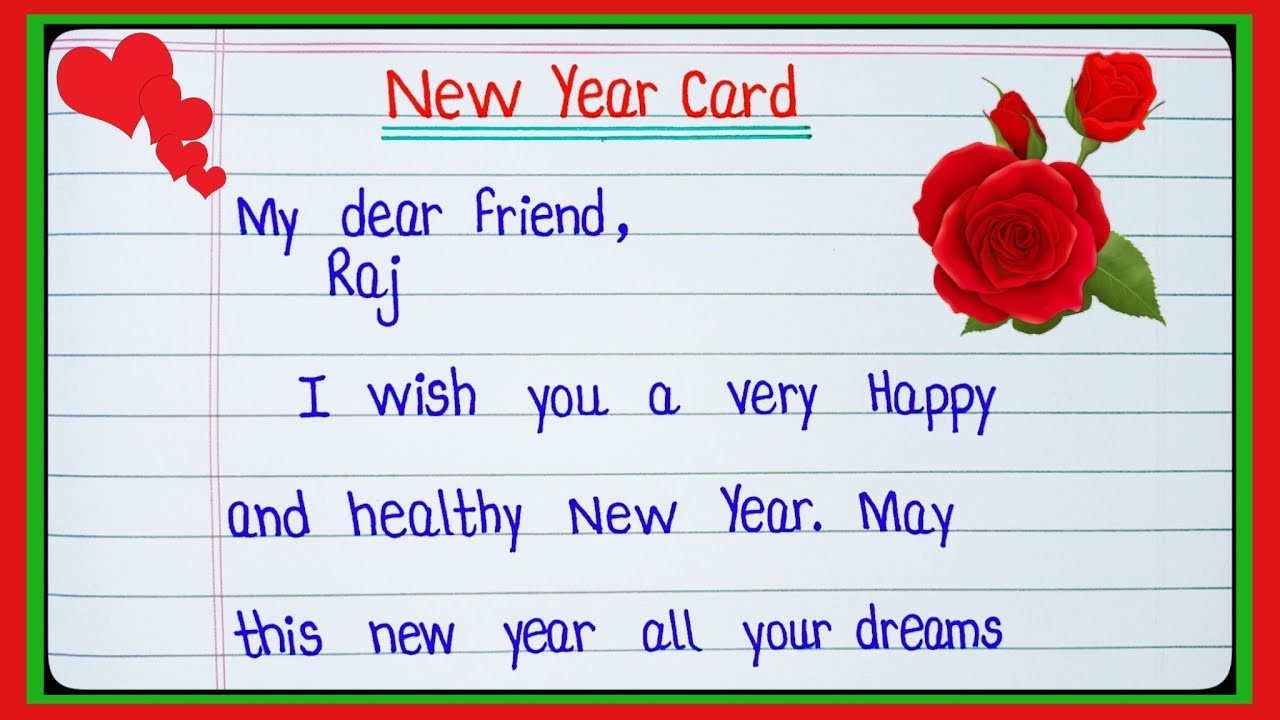 New Year Card
My dear friend,
Raj
I wish you a very Happy
and healthy New Year. May
this new year all your dreams